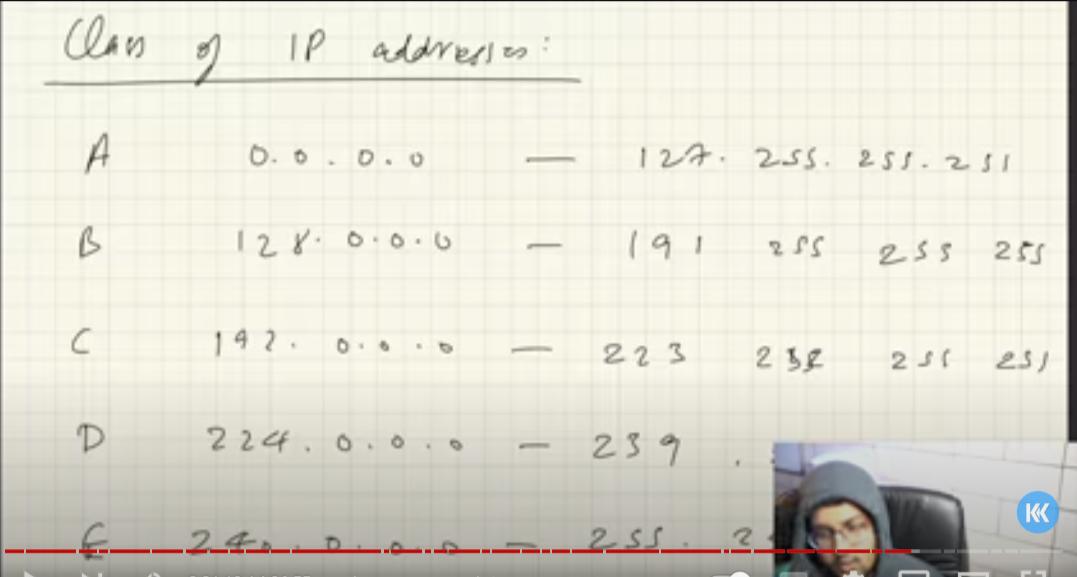 Class of IP addresses:
A 0.0.0.0 — 127.255.255.255
B 128.0.0.0 — 191 255 255 255
C 192.0.0.0 — 223 255 255 255
D 224.0.0.0 — 239 .
E 240.0.0.0 — 255. 2